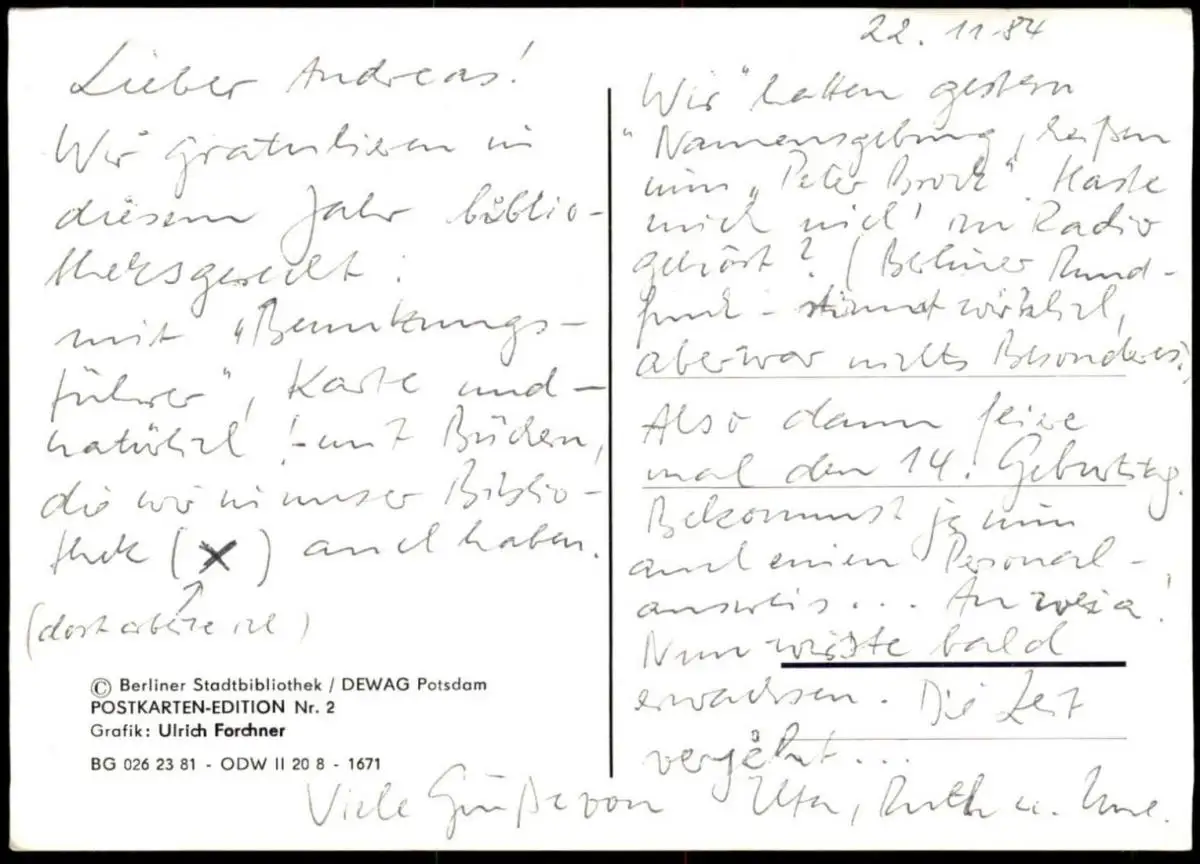 22. 11. 84
Lieber Andreas!
Wir gratulieren in
diesem Jahr biblio-
theksgerecht:
mit „Benutzungs-
führer“, Karte und -
natürlich! - mit Büchern,
die wir in unser Biblio-
thek (x) auch haben.
(dort arbeite ich)
Wir hatten gestern
"Namensgebung, heißen
nun „Peter Brock“. Haste
mich nich' im Radio
gehört? (Berliner Rund-
funk - stimmt wirklich,
aber war nichts Besonderes)
Also dann feire
mal den 14. Geburtstag.
Bekommst ja nun
auch einen Personal-
ausweis... Au weia!
Nun wirste bald
erwachsen. Die Zeit
vergeht...
Viele Grüße von Uta, Ruth u. Uwe.
© Berliner Stadtbibliothek / DEWAG Potsdam
POSTKARTEN-EDITION Nr. 2
Grafik: Ulrich Forchner
BG 026 23 81 - ODW II 20 8 - 1671